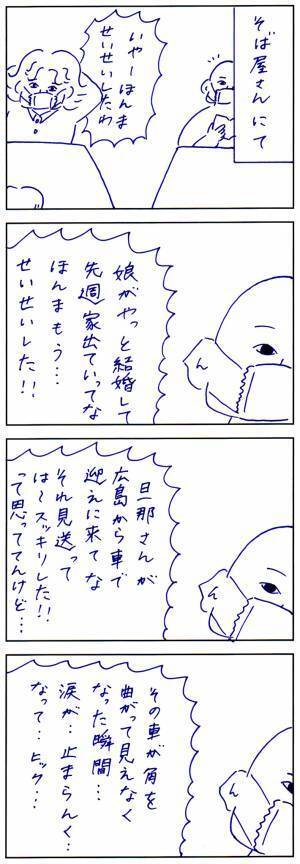 そば屋さんにて
いやーほんま
せいせいしたわ
娘がやっと結婚して
先週家出ていってな
ほんまもう…
せいせいした!!
ん
旦那さんが
広島から車で
迎えに来てな
それ見送って
は〜スッキリした!!
って思っててんけど…
ん
その車が角を
曲がって見えなく
なった瞬間…
涙が…止まらんく…
なって…ヒック…